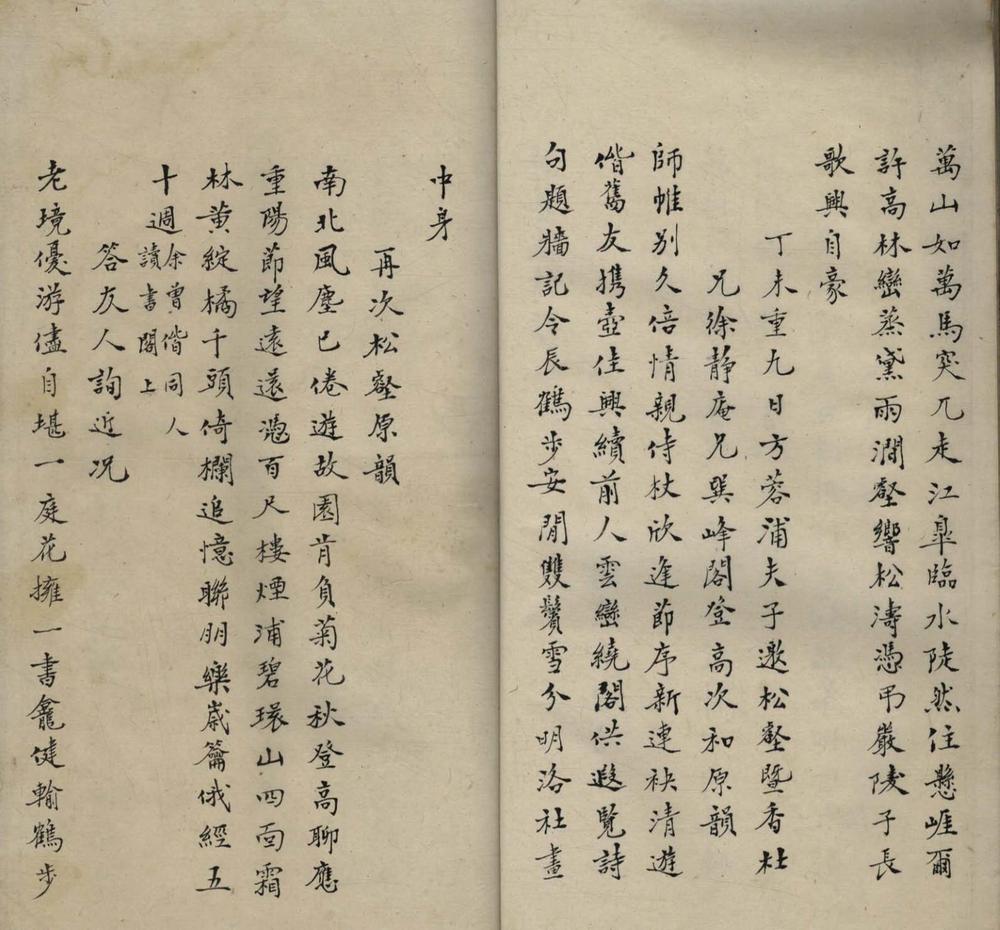 萬山如萬馬突兀走江臯臨水陡然住懸崕爾
許高林巒蒸黛雨澗壑響松濤憑弔嚴陵子長
歌興自豪
丁未重九日方蓉浦夫子邀松壑暨香杜
兄徐靜庵兄巽峰閣登高次和原韻
師帷別久倍情親侍杖欣逢節序新連袂清遊
偕舊友携壺佳興續前人雲巒繞閣供遐覽詩
句題牆記令辰鶴步安閒雙鬢雪分明洛社畫
中身
再次松壑原韻
南北風塵已倦遊故園肯負菊花秋登高聊應
重陽節望遠還憑百尺樓煙浦碧環山四面霜
林黃綻橘千頭倚欄追憶聯朋樂嵗籥俄經五
十週余曾偕同人
讀書閣上
答友人詢近况
老境優游儘自堪一庭花擁一書龕健輸鶴步